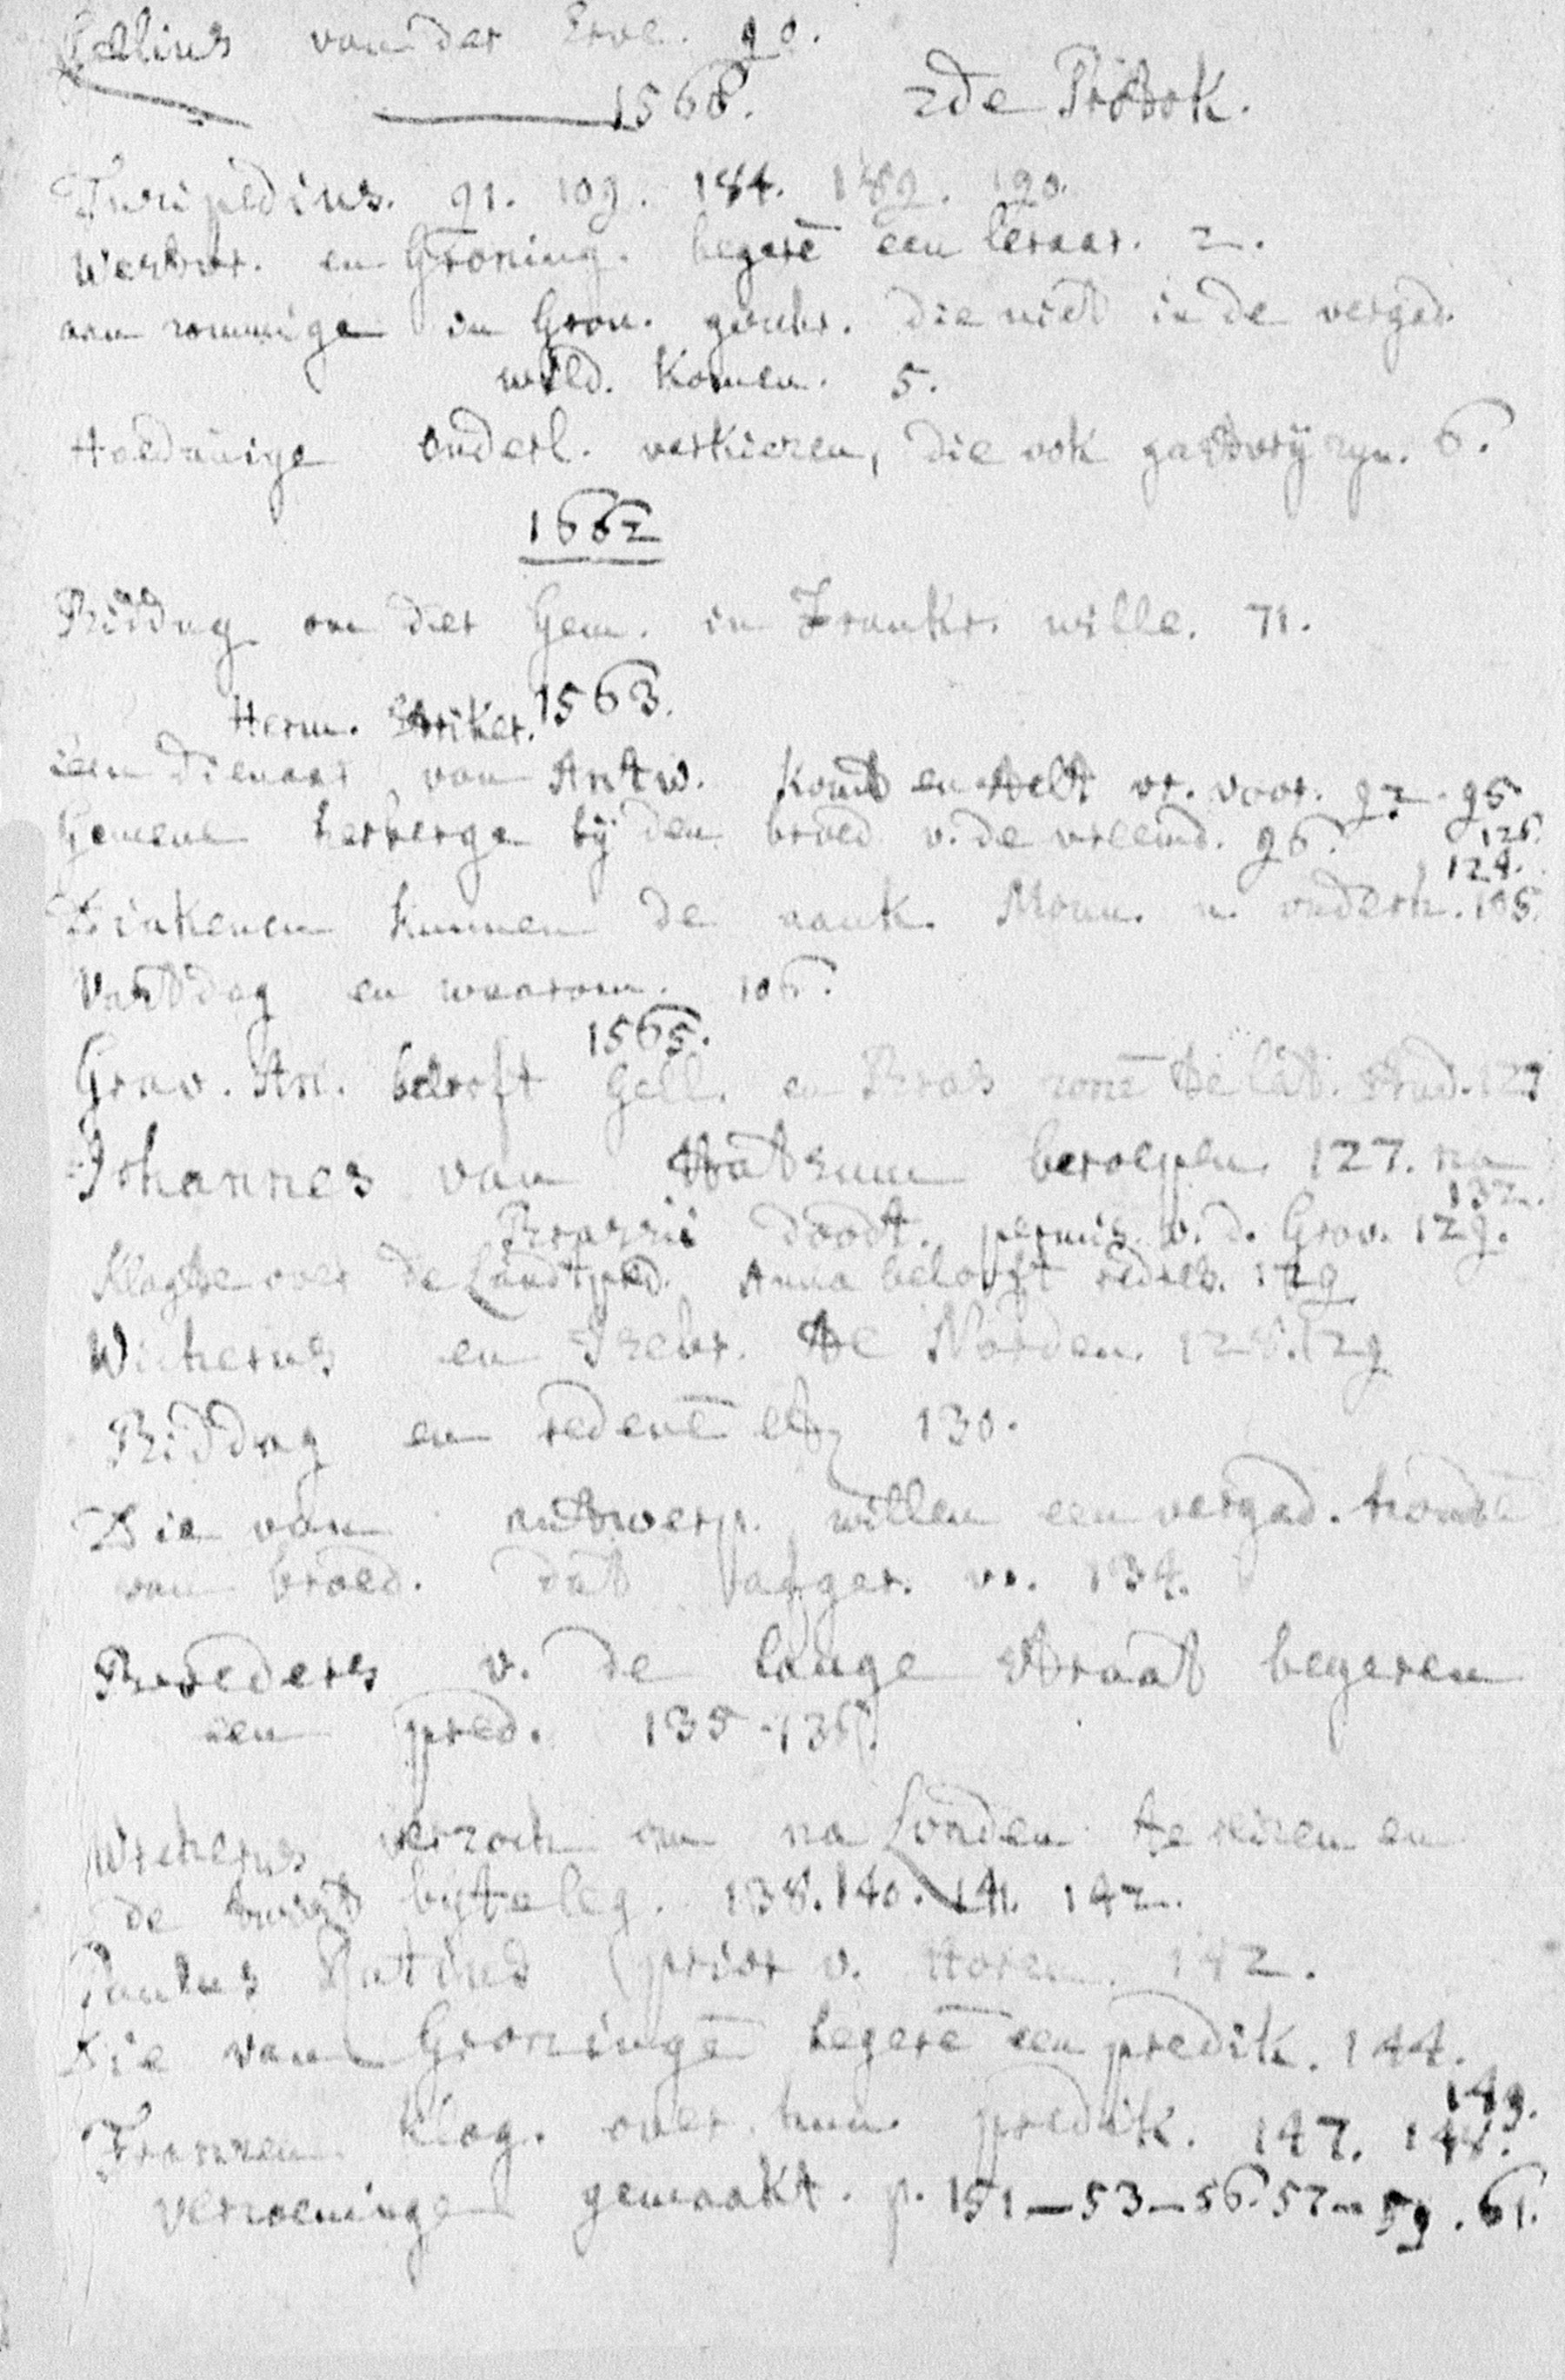 van der Erve. 90.
1568. 2de Protok.
Turipedius. 91. 109. 184. 189. 190.
en Groning. begerē een leraar. 2.
aan sommige in Gron. geschr. die niet in de vergad.
wild. komen. 5.
Hoedanige ouderl. verkiezen, die ook gastvrij zyn. 6.
1662
Biddag om der Gem. in Frankr. wille. 71.
Herm. Striker. 1563.
een dienaar van Antw. komt en stelt vr. voor. 92-95
Gemene herberge bij den broed v. de vreemd. 96. 126.
124.
Diakenen kunnen de aank. Monn. n. onderh. 105.
Vastdag en waarom. 106.
1565.
Grav. An. belooft Gell. en Bras zonē te lat. stud. 127
Johannes van Statsum beroepen. 127. na
132.
Brassii doodt. permis. v. d. Grav. 129.
Klagte over de Landtpred. Anna belooft redres. 129
Wicherus en Frebr. te Norden. 128. 129
Biddag en redenē 130.
Die van antwerp. willen een vergad. houdē
van broed. dat afger. vr. 134.
Broeders v. de lange straat begeren
een pred. 135-136.
Wicherus verzoch om na Londen te reizen en
de twist bijteleg. 138. 140. 141. 142.
Paulus prior v. 142.
Die van Groningē begerē een predik. 144.
149.
Franzen klag. over hun predik. 147. 148.
verzoeninge gemaakt. p. 151-53-56. 57-59. 61.